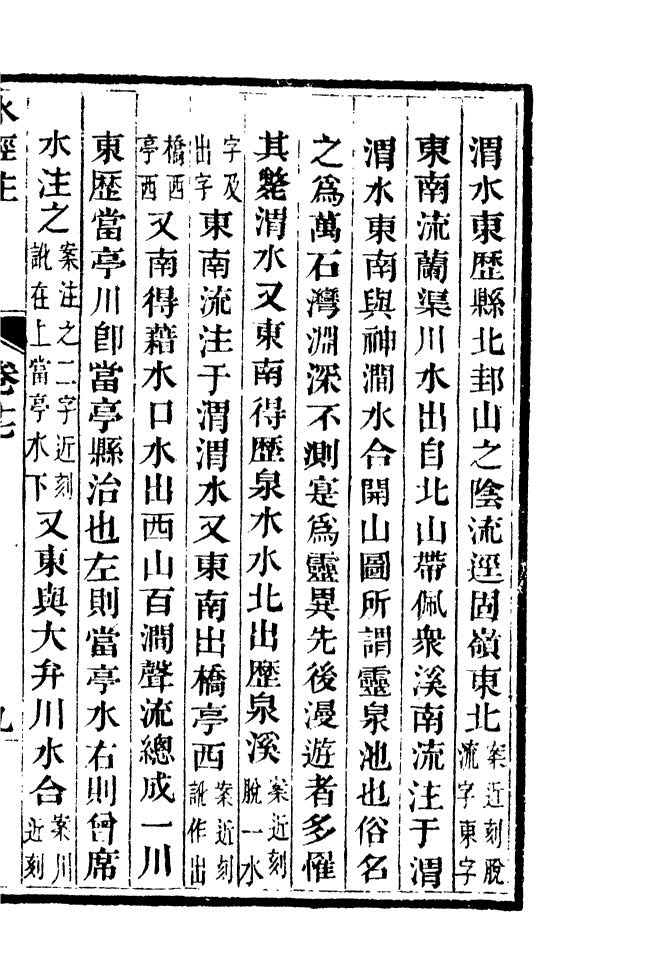 渭水東歷縣北邽山之陰流逕固嶺東北案近刻脫流字東字
東南流蘭渠川水出自北山帶佩衆溪南流注于渭
渭水東南與神澗水合開山圖所謂靈泉池也俗名
之爲萬石灣淵深不測寔爲靈異先後漫遊者多懼
其斃渭水又東南得歷泉水水北出歷泉溪案近刻脫一水
字及出字東南流注于渭渭水又東南出橋亭西案近刻訛作出
橋西亭西又南得藉水口水出西山百澗聲流總成一川
東歷當亭川卽當亭縣治也左則當亭水右則曾席
水注之案注之二字近刻訛在上當亭水下又東與大弁川水合案川近刻
水經注
卷十七
九